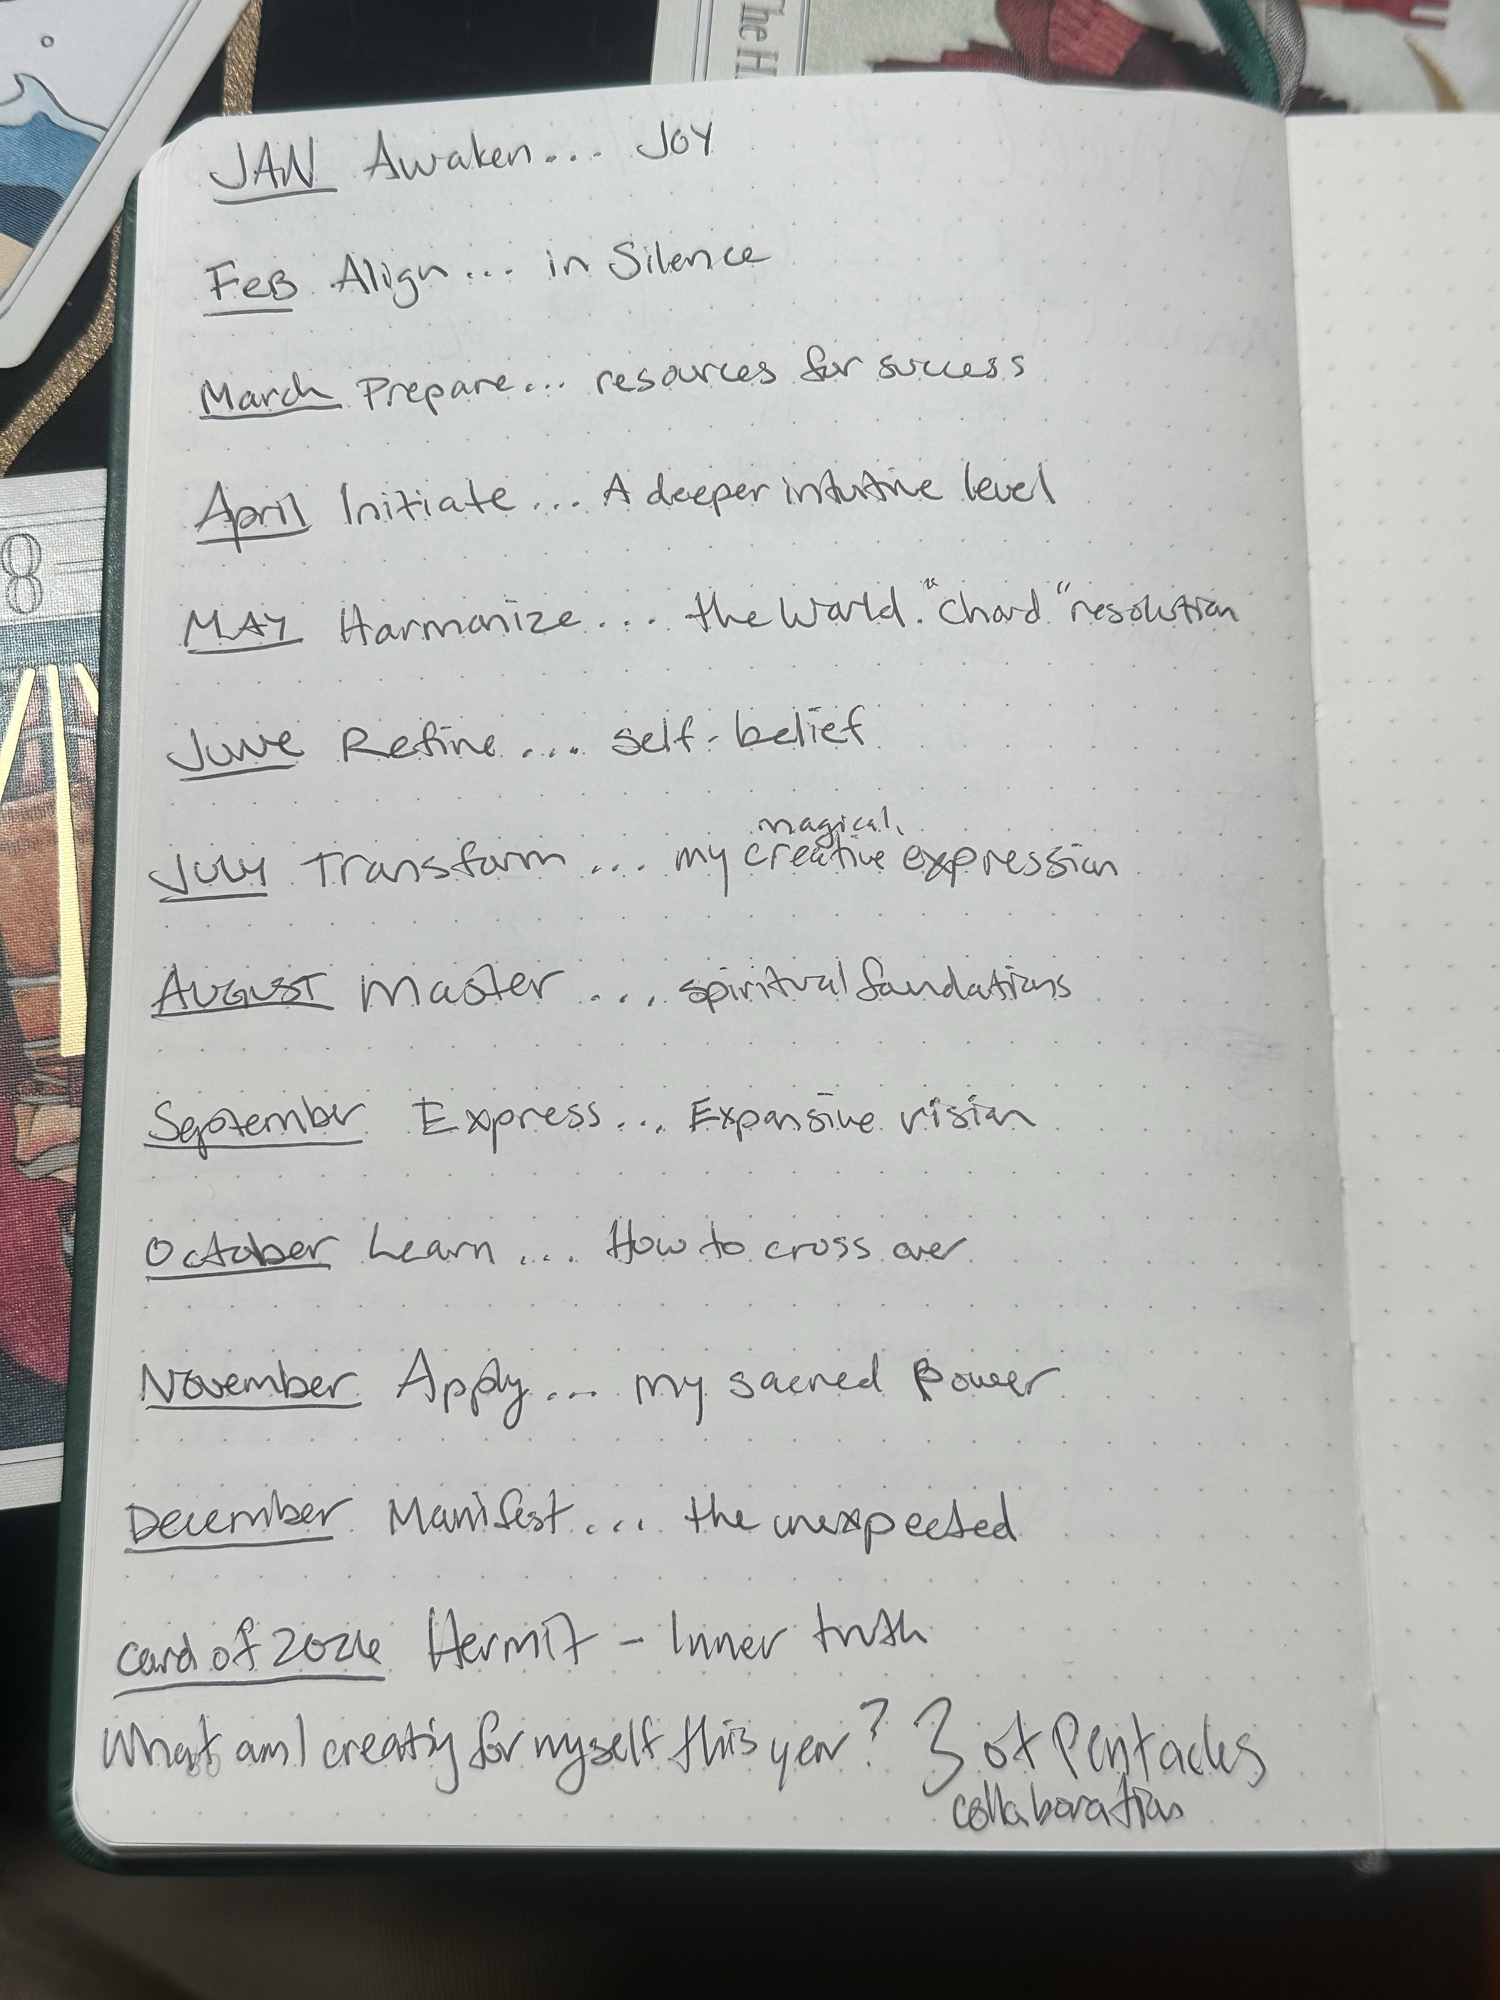 The H
8
JAN Awaken... JOY
FEB Align... in Silence
March Prepare... resources for success
April Initiate... A deeper intuitive level
MAY Harmonize... the World. "Chord" resolution
JUNE Refine.... self-belief
magical,
JULY Transform ... my creative expression
AUGUST Master .... spiritual foundations
September Express... Expansive vision
October Learn ... How to cross over
November Apply... my sacred Power
December Manifest.... the unexpected
card of 2026 Hermit - Inner truth
What am I creatig for myself this year? 3 of Pentacles
collaboration